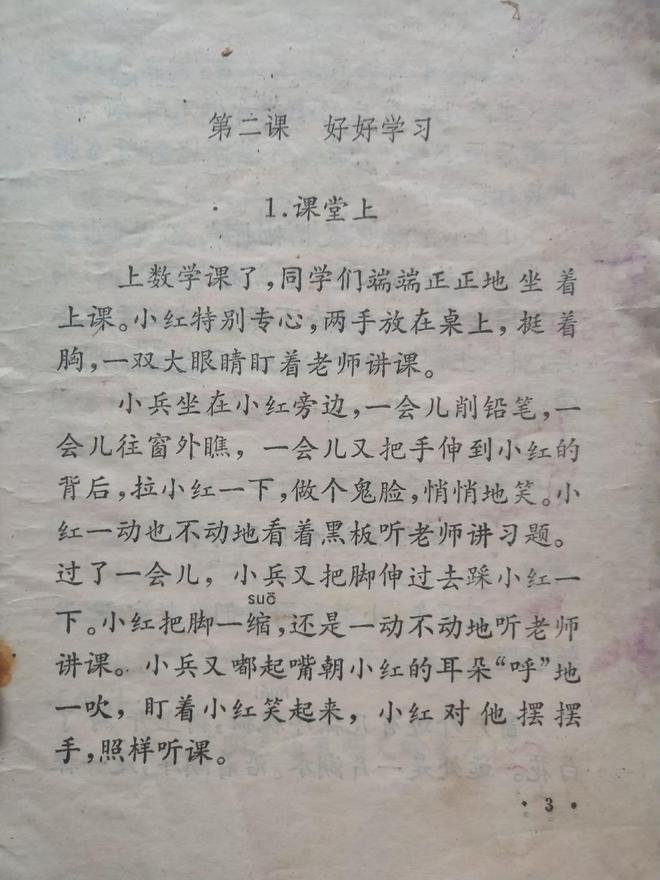 第二课 好好学习
1.课堂上
上数学课了,同学们端端正正地坐着
上课。小红特别专心,两手放在桌上,挺着
胸,一双大眼睛盯着老师讲课。
小兵坐在小红旁边,一会儿削铅笔,一
会儿往窗外瞧,一会儿又把手伸到小红的
背后,拉小红一下,做个鬼脸,悄悄地笑。小
红一动也不动地看着黑板听老师讲习题。
过了一会儿,小兵又把脚伸过去踩小红一
suō
下。小红把脚一缩,还是一动不动地听老师
讲课。小兵又嘟起嘴朝小红的耳朵“呼”地
一吹,盯着小红笑起来,小红对他摆摆
手,照样听课。
· 3 ·